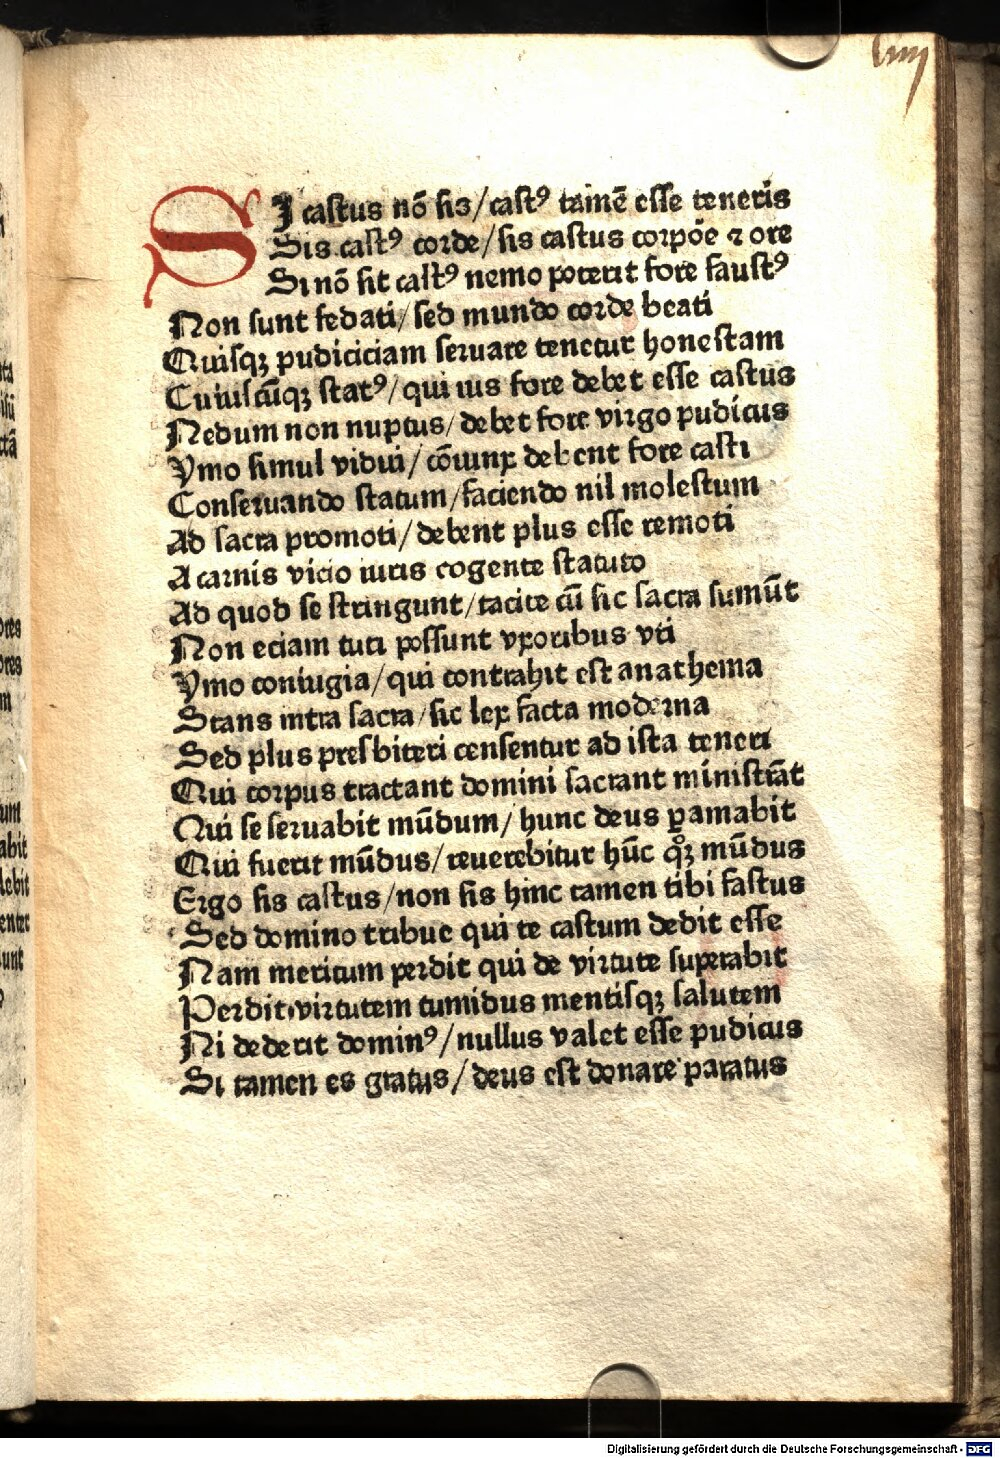 liiij
SI castus nō sis/castꝰ tamē esse teneris
Sis castꝰ corde/sis castus corpōe ⁊ ore
Si nō sit castꝰ nemo poterit fore faustꝰ
Non sunt fedati/sed mundo corde beati
Quisqꝫ pudiciciam seruare tenetur honestam
Cuiuscūqꝫ statꝰ/qui ius fore debet esse castus
Nedum non nuptus/debet fore virgo pudicus
Ymo simul vidui/cōiunx debent fore casti
Conseruando statum/faciendo nil molestum
Ad sacra promoti/debent plus esse remoti
A carnis vicio iuris cogente statuto
Ad quod se stringunt/tacite cū sic sacra sumūt
Non eciam tuti possunt vxoribus vti
Ymo coniugia/qui contrahit est anathema
Stans intra sacra/sic lex facta moderna
Sed plus presbiteri censentur ad ista teneri
Qui corpus tractant domini sacrant ministrāt
Qui se seruabit mūdum/hunc deus ꝑamabit
Qui fuerit mūdus/reuerebitur hūc qͦꝫ mūdus
Ergo sis castus/non sis hinc tamen tibi fastus
Sed domino tribue qui te castum dedit esse
Nam meritum perdit qui de virtute superabit
Perdit virtutem tumidus mentisqꝫ salutem
Ni dederit dominꝰ/nullus valet esse pudicus
Si tamen es gratus/deus est donare paratus
ta
ores
ores
m
um
abit
debit
enter
unt
Digitalisierung gefördert durch die Deutsche Forschungsgemeinschaft - DFG